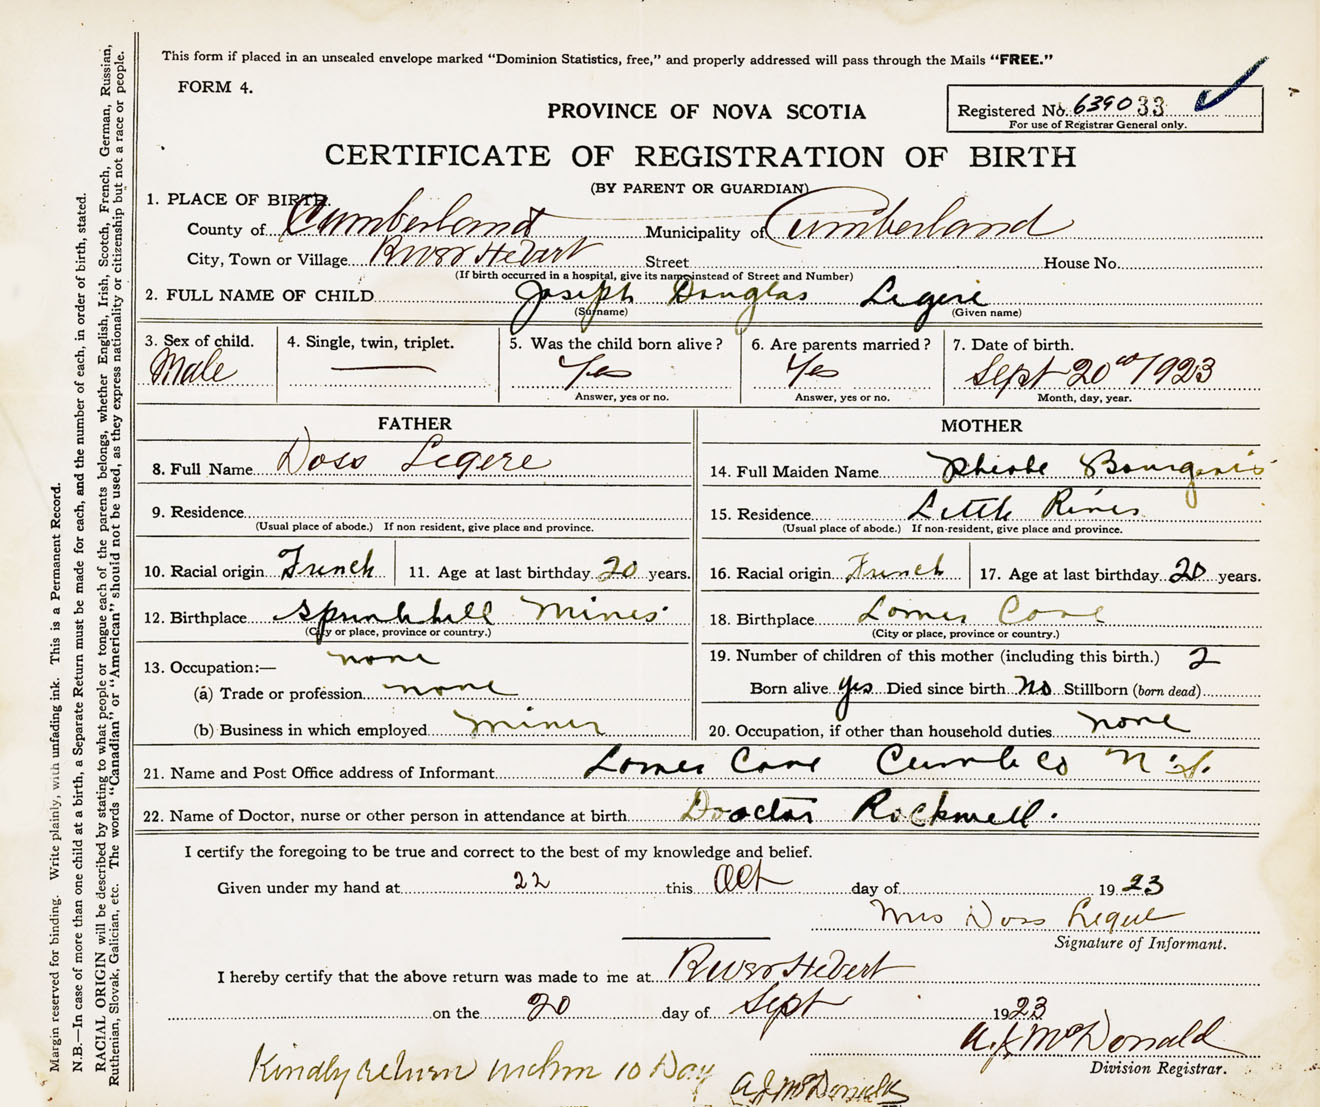 This form if placed in an unsealed envelope marked "Dominion Statistics, free," and properly addressed will pass through the Mails "FREE."
FORM 4.
PROVINCE OF NOVA SCOTIA
Registered No. 639033
For use of Registrar General only.
CERTIFICATE OF REGISTRATION OF BIRTH
(BY PARENT OR GUARDIAN)
1. PLACE OF BIRTH.
County of Cumberland Municipality of Cumberland
City, Town or Village River Hebert Street House No.
(If birth occurred in a hospital, give its name instead of Street and Number)
2. FULL NAME OF CHILD Joseph Douglas Legere
(Surname) (Given name)
3. Sex of child. 4. Single, twin, triplet. 5. Was the child born alive? 6. Are parents married? 7. Date of birth.
Male — Yes Yes Sept 20th 1923
Answer, yes or no. Answer, yes or no. Month, day, year.
FATHER
8. Full Name Doss Legere
9. Residence
(Usual place of abode.) If non resident, give place and province.
10. Racial origin French 11. Age at last birthday 20 years.
12. Birthplace Sprinkhill Mines
(City or place, province or country.)
13. Occupation:— none
(a) Trade or profession none
(b) Business in which employed miner
MOTHER
14. Full Maiden Name Phoebe Bourgeois
15. Residence Little River
(Usual place of abode.) If non-resident, give place and province.
16. Racial origin French 17. Age at last birthday 20 years.
18. Birthplace Lomer Cove
(City or place, province or country.)
19. Number of children of this mother (including this birth.) 2
Born alive yes Died since birth No Stillborn (born dead)
20. Occupation, if other than household duties none
21. Name and Post Office address of Informant Lomer Cove Cumb Co N.S.
22. Name of Doctor, nurse or other person in attendance at birth Dooctor Rockwell.
I certify the foregoing to be true and correct to the best of my knowledge and belief.
Given under my hand at 22 this Oct day of 1923
Mrs Doss Legere
Signature of Informant.
I hereby certify that the above return was made to me at River Hebert
on the 20 day of Sept 1923
A. J. McDonald
Division Registrar.
Kindly return within 10 Day
A J McDonald
Margin reserved for binding. Write plainly, with unfading ink. This is a Permanent Record.
N.B.—In case of more than one child at a birth, a Separate Return must be made for each, and the number of each, in order of birth, stated.
RACIAL ORIGIN will be described by stating to what people or tongue each of the parents belongs, whether English, Irish, Scotch, French, German, Russian,
Ruthenian, Slovak, Galician, etc. The words "Canadian" or "American" should not be used, as they express nationality or citizenship but not a race or people.